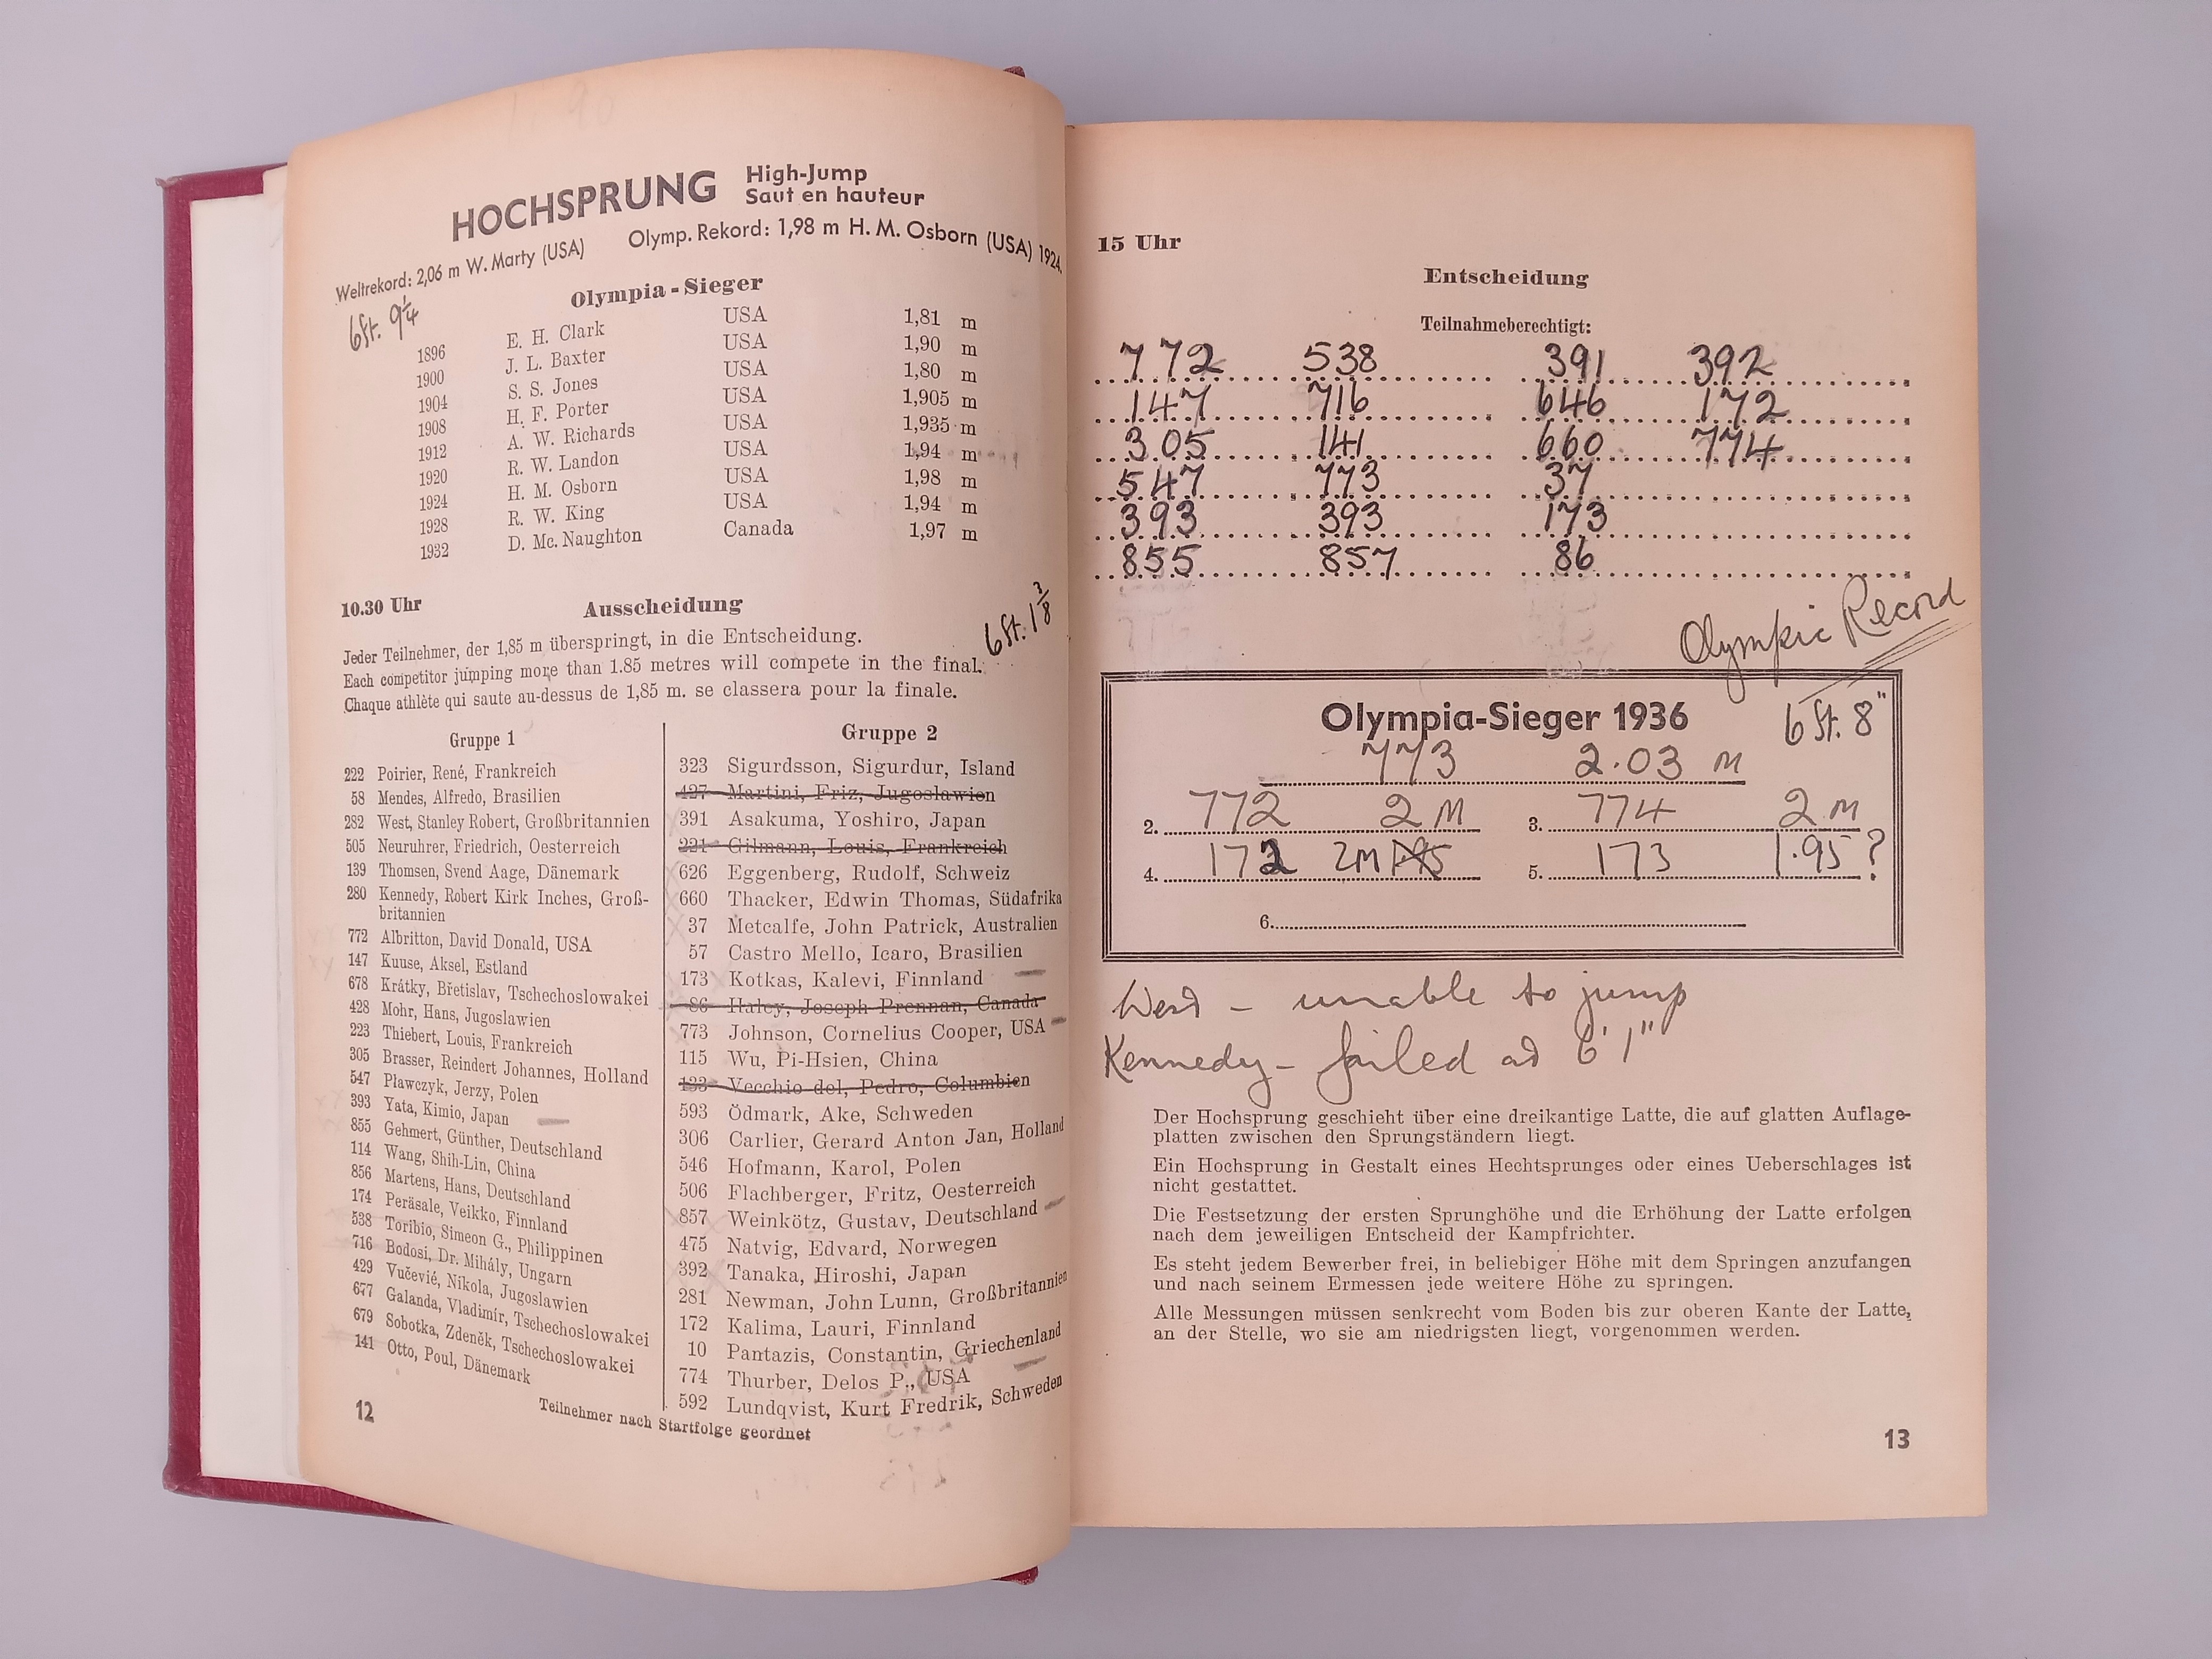 HOCHSPRUNG High-Jump
Saut en hauteur
Weltrekord: 2,06 m W. Marty (USA) Olymp. Rekord: 1,98 m H. M. Osborn (USA) 1924.
6ft. 9¼
Olympia-Sieger
1896 E. H. Clark USA 1,81 m
1900 J. L. Baxter USA 1,90 m
1904 S. S. Jones USA 1,80 m
1908 H. F. Porter USA 1,905 m
1912 A. W. Richards USA 1,935 m
1920 R. W. Landon USA 1,94 m
1924 H. M. Osborn USA 1,98 m
1928 R. W. King USA 1,94 m
1932 D. Mc. Naughton Canada 1,97 m
10.30 Uhr Ausscheidung
6ft. 1⅜
Jeder Teilnehmer, der 1,85 m überspringt, in die Entscheidung.
Each competitor jumping more than 1.85 metres will compete in the final.
Chaque athlète qui saute au-dessus de 1,85 m. se classera pour la finale.
Gruppe 1
222 Poirier, René, Frankreich
58 Mendes, Alfredo, Brasilien
282 West, Stanley Robert, Großbritannien
505 Neuruhrer, Friedrich, Oesterreich
139 Thomsen, Svend Aage, Dänemark
280 Kennedy, Robert Kirk Inches, Groß-
britannien
772 Albritton, David Donald, USA
147 Kuuse, Aksel, Estland
678 Krátky, Břetislav, Tschechoslowakei
428 Mohr, Hans, Jugoslawien
223 Thiebert, Louis, Frankreich
305 Brasser, Reindert Johannes, Holland
547 Pławczyk, Jerzy, Polen
393 Yata, Kimio, Japan
855 Gehmert, Günther, Deutschland
114 Wang, Shih-Lin, China
856 Martens, Hans, Deutschland
174 Peräsale, Veikko, Finnland
538 Toribio, Simeon G., Philippinen
716 Bodosi, Dr. Mihály, Ungarn
429 Vučevié, Nikola, Jugoslawien
677 Galanda, Vladimír, Tschechoslowakei
679 Sobotka, Zdeněk, Tschechoslowakei
141 Otto, Poul, Dänemark
Gruppe 2
323 Sigurdsson, Sigurdur, Island
427 Martini, Friz, Jugoslawien
391 Asakuma, Yoshiro, Japan
221 Gilmann, Louis, Frankreich
626 Eggenberg, Rudolf, Schweiz
660 Thacker, Edwin Thomas, Südafrika
37 Metcalfe, John Patrick, Australien
57 Castro Mello, Icaro, Brasilien
173 Kotkas, Kalevi, Finnland
86 Haley, Joseph Prennan, Canada
773 Johnson, Cornelius Cooper, USA
115 Wu, Pi-Hsien, China
133 Vecchio del, Pedro, Columbien
593 Ödmark, Ake, Schweden
306 Carlier, Gerard Anton Jan, Holland
546 Hofmann, Karol, Polen
506 Flachberger, Fritz, Oesterreich
857 Weinkötz, Gustav, Deutschland
475 Natvig, Edvard, Norwegen
392 Tanaka, Hiroshi, Japan
281 Newman, John Lunn, Großbritannien
172 Kalima, Lauri, Finnland
10 Pantazis, Constantin, Griechenland
774 Thurber, Delos P., USA
592 Lundqvist, Kurt Fredrik, Schweden
12 Teilnehmer nach Startfolge geordnet
15 Uhr
Entscheidung
Teilnahmeberechtigt:
772 538 391 392
147 716 646 172
305 141 660 774
547 773 37
393 393 173
855 857 86
Olympic Record
Olympia-Sieger 1936 6ft. 8"
773 2.03 m
2. 772 2 M 3. 774 2 m
4. 172 2M 1.95 5. 173 1.95?
6.
West – unable to jump
Kennedy – failed at 6' 1"
Der Hochsprung geschieht über eine dreikantige Latte, die auf glatten Auflage-
platten zwischen den Sprungständern liegt.
Ein Hochsprung in Gestalt eines Hechtsprunges oder eines Ueberschlages ist
nicht gestattet.
Die Festsetzung der ersten Sprunghöhe und die Erhöhung der Latte erfolgen
nach dem jeweiligen Entscheid der Kampfrichter.
Es steht jedem Bewerber frei, in beliebiger Höhe mit dem Springen anzufangen
und nach seinem Ermessen jede weitere Höhe zu springen.
Alle Messungen müssen senkrecht vom Boden bis zur oberen Kante der Latte,
an der Stelle, wo sie am niedrigsten liegt, vorgenommen werden.
13